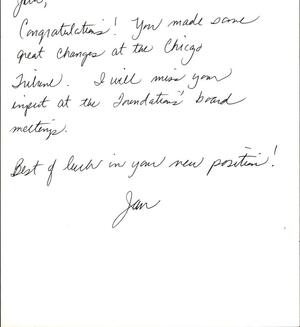 Congratulations! You made some
great changes at the Chicgo
Tribune. I will miss your
input at the Foundations' board
meetings.
Best of luck in your new position!
Jan